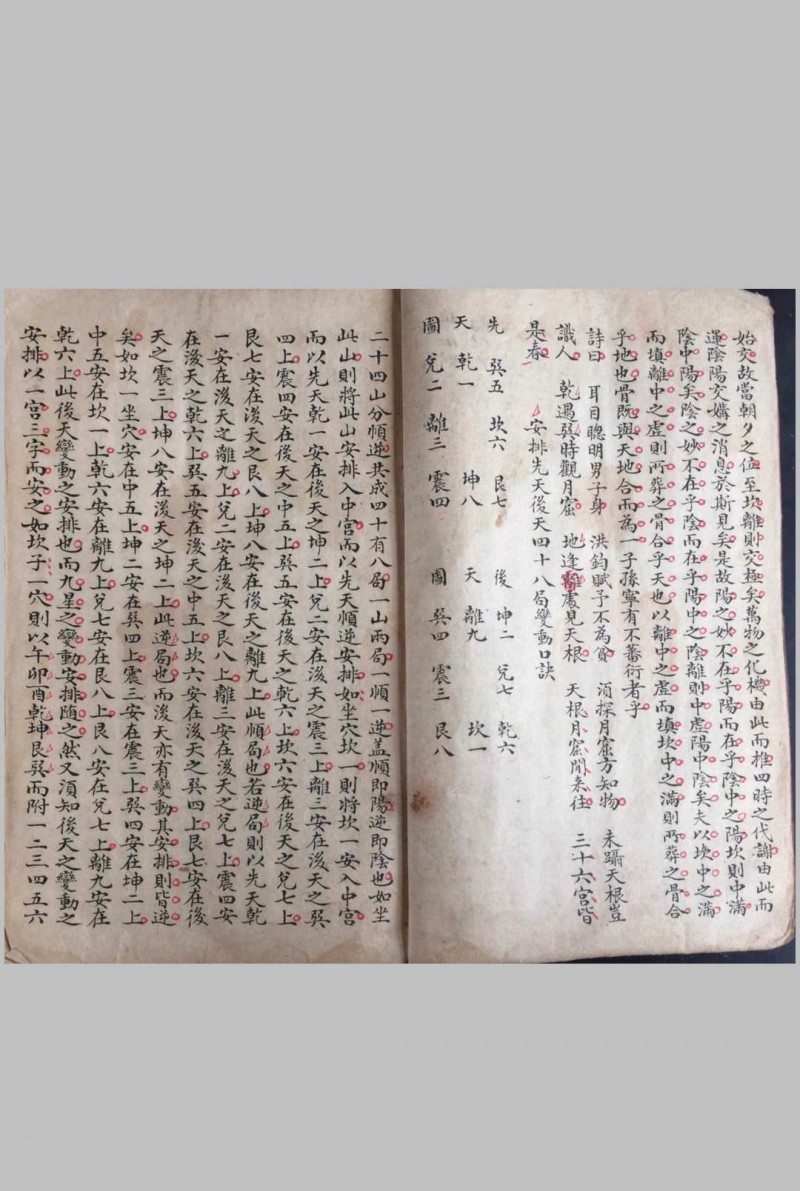 始交故當朝夕之位至坎離則交極矣萬物之化機由此而推四時之代謝由此而
運陰陽交媾之消息於斯見矣是故陽之妙不在乎陽而在乎陰中之陽坎則中滿
陰中陽矣陰之妙不在乎陰而在乎陽中之陰離則中虛陽中陰矣夫以坎中之滿
而填離中之虛則所葬之骨合乎天也以離中之虛而填坎中之滿則所葬之骨合
乎地也骨既與天地合而為一子孫寧有不蕃衍者乎
詩曰 耳目聰明男子身 洪鈞賦予不為貧 須探月窟方知物 未躡天根豈
識人 乾遇巽時觀月窟 地逢雷處見天根 天根月窟閒來往 三十六宮皆
是春 安排先天後天四十八局變動口訣
先 巽五 坎六 艮七 後 坤二 兌七 乾六
天 乾一 坤八 天 離九 坎一
圖 兌二 離三 震四 圖 巽四 震三 艮八
二十四山分順逆共成四十有八局一山兩局一順一逆蓋順即陽逆即陰也如坐
此山則將此山安排入中宮而以先天順逆安排如坐穴坎一則將坎一安入中宮
而以先天乾一安在後天之坤二上兌二安在後天之震三上離三安在後天之巽
四上震四安在後天之中五上巽五安在後天之乾六上坎六安在後天之兌七上
艮七安在後天之艮八上坤八安在後天之離九上此順局也若逆局則以先天乾
一安在後天之離九上兌二安在後天之艮八上離三安在後天之兌七上震四安
在後天之乾六上巽五安在後天之中五上坎六安在後天之巽四上艮七安在後
天之震三上坤八安在後天之坤二上此逆局也而後天亦有變動其安排則皆逆
矣如坎一坐穴安在中五上坤二安在巽四上震三安在震三上巽四安在坤二上
中五安在坎一上乾六安在離九上兌七安在艮八上艮八安在兌七上離九安在
乾六上此後天變動之安排也而九星之變動安排隨之然又須知後天之變動之
安排以一宮三字而安之如坎子一穴則以午卯酉乾坤艮巽而附一二三四五六